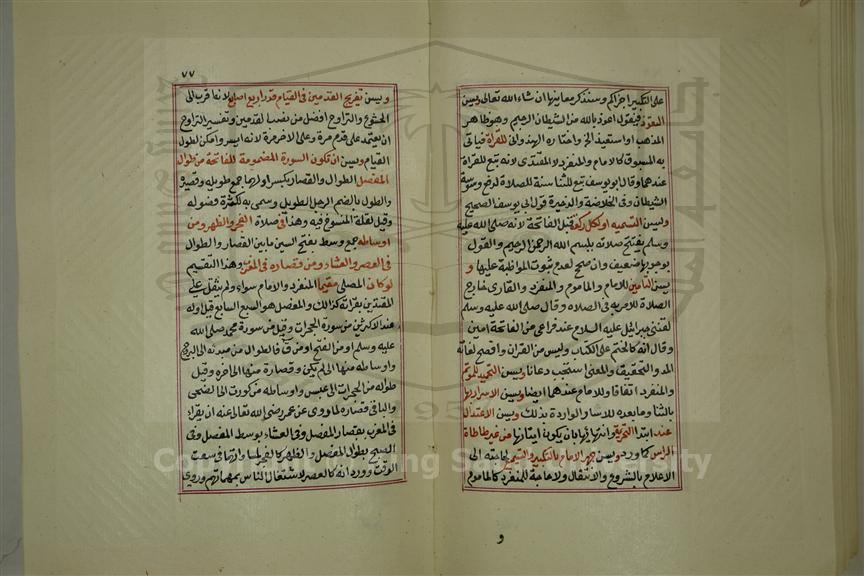 على التكبير اجزاكم وسنذكر معانيها ان شاء الله تعالى ويسن
التعوذ فيقول اعوذ بالله من الشيطان الرجيم وهو ظاهر
المذهب او استعيذ الخ واختاره الهندواني للقراة فياتي
به المسبوق كالامام والمنفرد لا المقتدى لانه تبع للقراة
عندهما وقال ابو يوسف تبع للثنا سنة للصلاة لدفع وسوسة
الشيطان وفى الخلاصة والذخيرة قول ابى يوسف الصحيح
ويسن التسميه اول كل ركعة قبل الفاتحة لانه صلى الله عليه
وسلم يفتتح صلاته ببسم الله الرحمن الرحيم والقول
بوجوبها ضعيف وان صحح لعدم ثبوت المواظبة عليها و
يسن التامين للامام والماموم والمنفرد والقارى خارج
الصلاة للامر به فى الصلاه وقال صلى الله عليه وسلم
لقننى جبرائيل عليه السلام عند فراغى من الفاتحة امين
وقال انه كالختم على الكتاب وليس من القران وافصح لغاته
المد والتخفيف والمعنى استجب دعانا ويسن التحميد للموتم
والمنفرد اتفاقا وللامام عندهما ايضا ويسن الاسرار بها
بالثنا وما بعده للاثار الواردة بذلك ويسن الاعتدال
عند ابتدا التحريمة وانتهائها بان يكون ايتانها من غير طاطاة
الراس كما ورد ويسن جهر الامام بالتكبير والتسميع لحاجته الى
الاعلام بالشروع والانتقال ولا حاجة للمنفرد كالماموم
و
٧٧
ويسن تفريج القدمين فى القيام قدر اربع اصابع لانه اقرب الى
الخشوع والتراوح افضل من نصب القدمين وتفسير التراوح
ان يعتمد على قدم مرة وعلى الاخر مرة لانه ايسر وامكن لطول
القيام ويسن ان تكون السورة المضمومة للفاتحة من طوال
المفصل الطوال والقصار بكسر اولهما جمع طويله وقصيره
والطول بالضم الرجل الطويل وسمى به لكثرة فصوله
وقيل لقلة المنسوخ فيه وهذا فى صلاة الفجر والظهر ومن
اوساطه جمع وسط بفتح السين ما بين القصار والطوال
فى العصر والعشاء ومن قصاره فى المغرب وهذا التقسيم
لو كان المصلى مقيما المنفرد والامام سواء ولم يثقل على
المقتدين بقراته كذلك والمفصل هو السبع السابع قيل اوله
عند الاكثرين من سورة الحجرات وقيل من سورة محمد صلى الله
عليه وسلم او من الفتح او من ق فالطوال من مبدئه الى البروج
واوساطه منها الى لم يكن وقصاره منها الى اخره وقيل
طواله من الحجرات الى عبس واوساطه من كورت الى الضحى
والباقى قصاره لما روى عن عمر رضى الله تعالى عنه ان يقراء
فى المغرب بقصار المفصل وفى العشاء بوسط المفصل وفى
الصبح بطوال المفصل والظهر كالفجر لمساواتهما فى سعة
الوقت وورد انه كالعصر لاشتغال الناس بمهماتهم وروى
Copyright © King Saud University